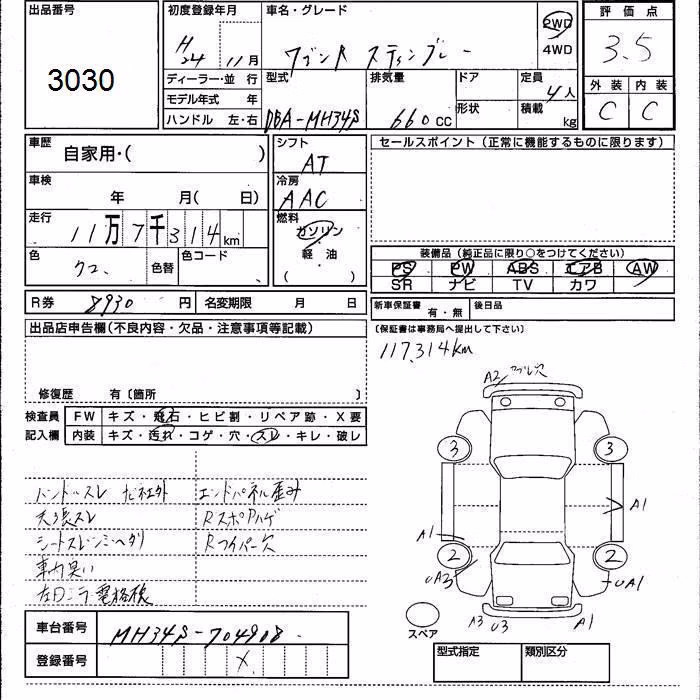 出品番号
3030
初度登録年月
H24 11月
車名・グレード
ワゴンR スティングレー
2WD
4WD
評価点
3.5
外装 内装
C C
ディーラー・並行
モデル年式 年
ハンドル 左・右
型式
DBA-MH34S
排気量
660cc
ドア
形状
定員
4人
積載
kg
車歴
自家用・( )
車検
年 月( 日)
走行
11万7千314km
色
クロ
色替
色コード
シフト
AT
冷房
AAC
燃料
ガソリン
軽油
( )
セールスポイント(正常に機能するものに限ります)
装備品(純正品に限り○をつけてください)
PS PW ABS エアB AW
SR ナビ TV カワ
R券 8930円
名変期限 月 日
新車保証書
有・無
後日品
(保証書は事務局へ提出して下さい)
出品店申告欄(不良内容・欠品・注意事項等記載)
修復歴 有〔箇所 〕
117,314km
検査員
記入欄
FW キズ・飛石・ヒビ割・リペア跡・X要
内装 キズ・汚れ・コゲ・穴・スレ・キレ・破レ
ハンドルスレ
エンドパネル歪み
天張スレ
RスポAハゲ
Rワイパー欠
車内臭い
A2
3 3
A1
A1
2 2
UA3
UA1
A3 U3
A1
スペア
車台番号
MH34S-704908
登録番号
X
型式指定
類別区分